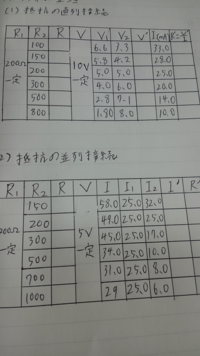 (1) 抵抗の直列接続
R₁ R₂ R V V₁ V₂ V' I(mA)
200Ω一定 10V一定
100 6.6 3.3 33.0
150 5.8 4.2 28.0
200 5.0 5.0 25.0
300 4.0 6.0 20.0
500 2.8 7.1 14.0
800 1.90 8.0 10.0
2) 抵抗の並列接続
R₁ R₂ R V I I₁ I₂ I' R'
200Ω一定 5V一定
150 58.0 25.0 32.0
200 49.0 25.0 25.0
300 45.0 25.0 17.0
500 34.0 25.0 10.0
700 31.0 25.0 8.0
1000 29 25.0 6.0